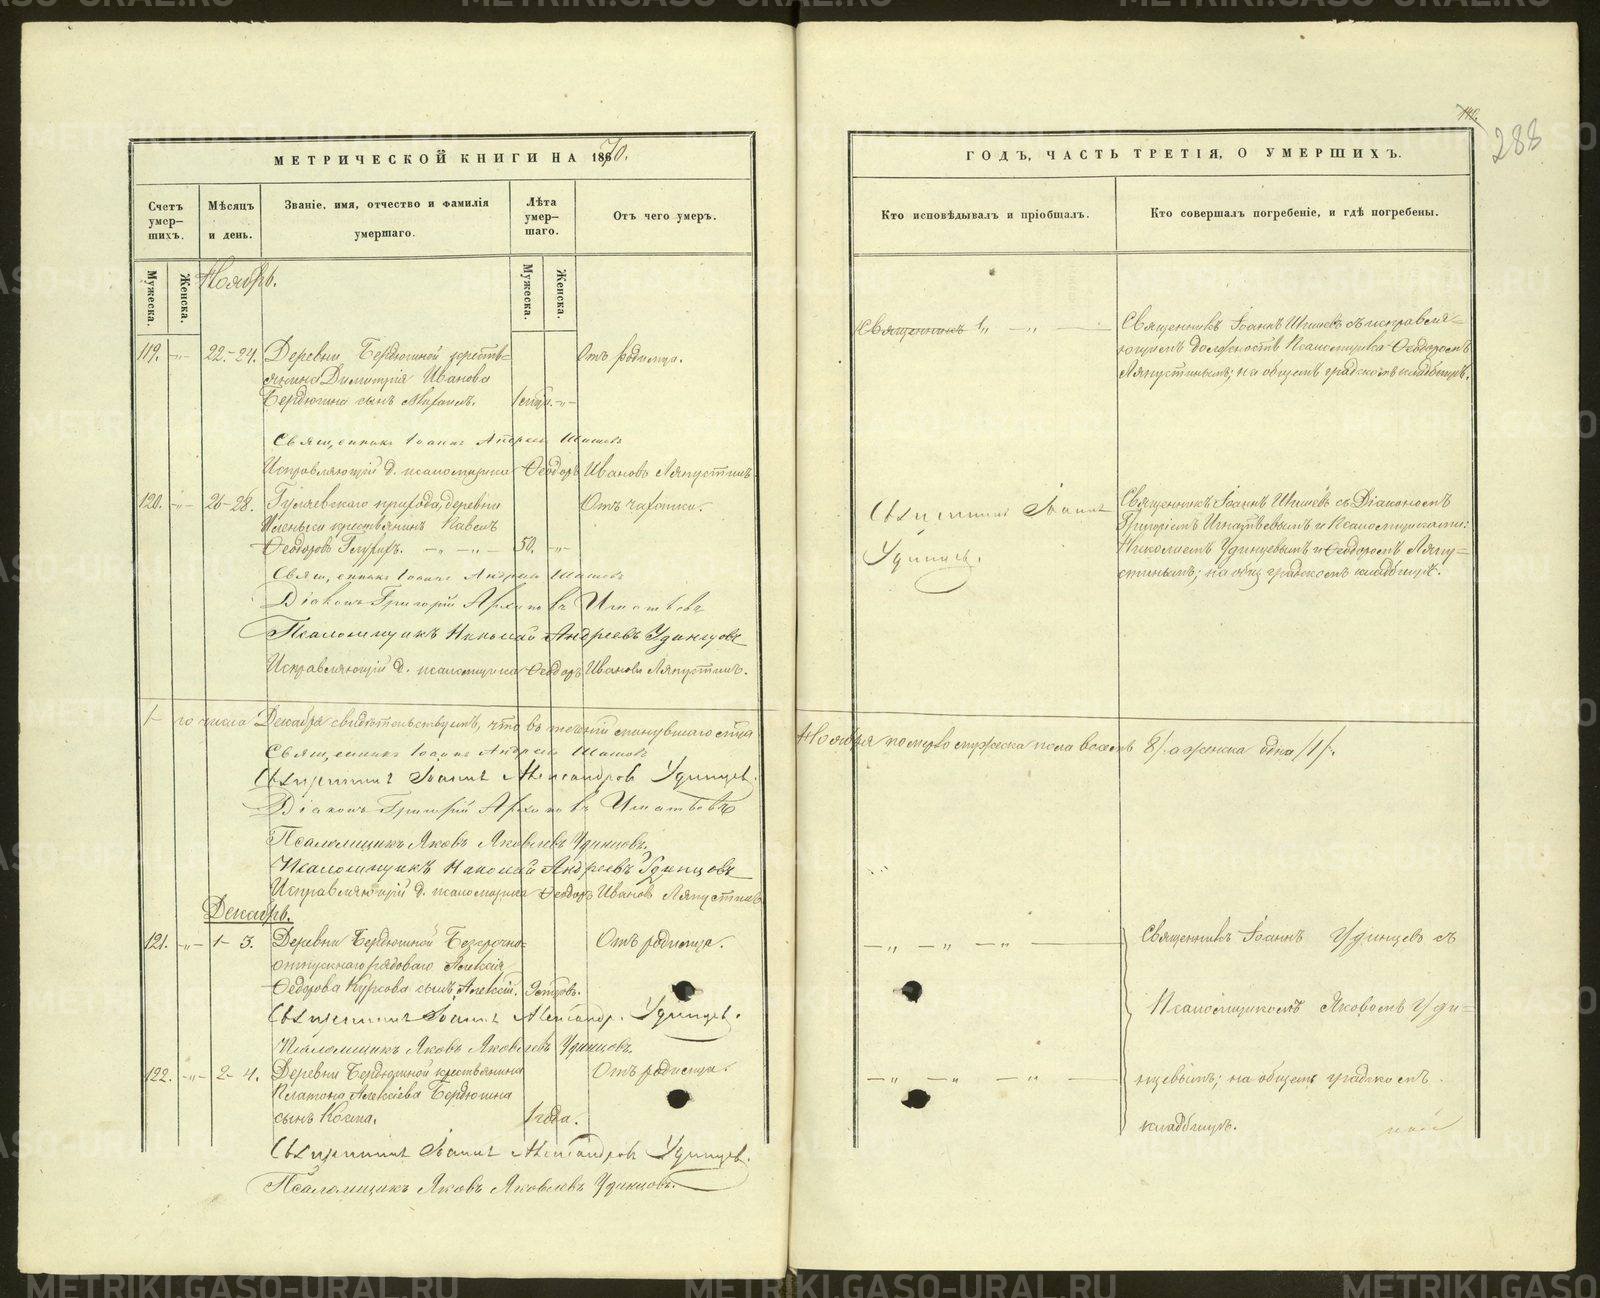 МЕТРИЧЕСКОЙ КНИГИ НА 1870.
Счетъ умер-
шихъ.
Мѣсяцъ
и день.
Званіе, имя, отчество и фамилія
умершаго.
Лѣта
умер-
шаго.
Отъ чего умеръ.
Мужеска.
Женска.
Мужеска.
Женска.
Ноябрь.
119. -„- 22-24. Деревни Бердюгиной крестья-
янина Димитрія Иванова
Бердюгина сынъ Михаилъ.
Отъ родимца.
Священникъ Іоаннъ Андреевъ
Исправляющій д. псаломщика Ѳеодоръ Ивановъ Ляпустинъ.
120. -„- 26-28. прихода, деревни
крестьянинъ Павелъ
Ѳеодоровъ Глухихъ. -„-„- 50. -„-
Отъ чахотки.
Священникъ Іоаннъ Андреевъ
Діаконъ Григорій Игнатьевъ
Псаломщикъ Николай Андреевъ Удинцовъ
Исправляющій д. псаломщика Ѳеодоръ Ивановъ Ляпустинъ.
1-го числа Декабря свидѣтельствуемъ, что въ теченіи минувшаго м-ца
Священникъ Іоаннъ Андреевъ
Священникъ Іоаннъ Александровъ Удинцевъ.
Діаконъ Григорій Игнатьевъ
Псаломщикъ Яковъ Яковлевъ Удинцовъ.
Псаломщикъ Николай Андреевъ Удинцовъ
Исправляющій д. псаломщика Ѳеодоръ Ивановъ Ляпустинъ
Декабрь.
121. -„- 1-3. Деревни Бердюгиной Безсрочно-
отпускнаго рядоваго Алексія
Ѳедорова сынъ Алексій.
Отъ родимца.
Священникъ Іоаннъ Александр. Удинцев.
Псаломщикъ Яковъ Яковлевъ Удинцовъ.
122. -„- 2-4. Деревни Бердюгиной крестьянина
Платона Алексіева Бердюгина
сынъ Косма. 1 года.
Отъ родимца.
Священникъ Іоаннъ Александровъ Удинцев.
Псаломщикъ Яковъ Яковлевъ Удинцовъ.
288
ГОДЪ, ЧАСТЬ ТРЕТІЯ, О УМЕРШИХЪ.
Кто исповѣдывалъ и пріобщалъ.
Кто совершалъ погребеніе, и гдѣ погребены.
Священникъ
Священникъ Іоаннъ съ исправля-
ющимъ должность Псаломщика Ѳеодоромъ
Ляпустинымъ; на общемъ градскомъ кладбищѣ.
Священникъ Іоаннъ
Удинцев.
Священникъ Іоаннъ съ Діакономъ
Григоріемъ Игнатьевымъ и Псаломщиками:
Николаемъ Удинцевымъ и Ѳеодоромъ Ляпу-
стинымъ; на общ. градскомъ кладбищѣ.
Ноября померло мужеска пола восемь /8/ а женска одна /1/.
Священникъ Іоаннъ Удинцевъ съ
Псаломщикомъ Яковомъ Уди-
нцевымъ; на общемъ градскомъ
кладбищѣ.
METRIKI.GASO-URAL.RU